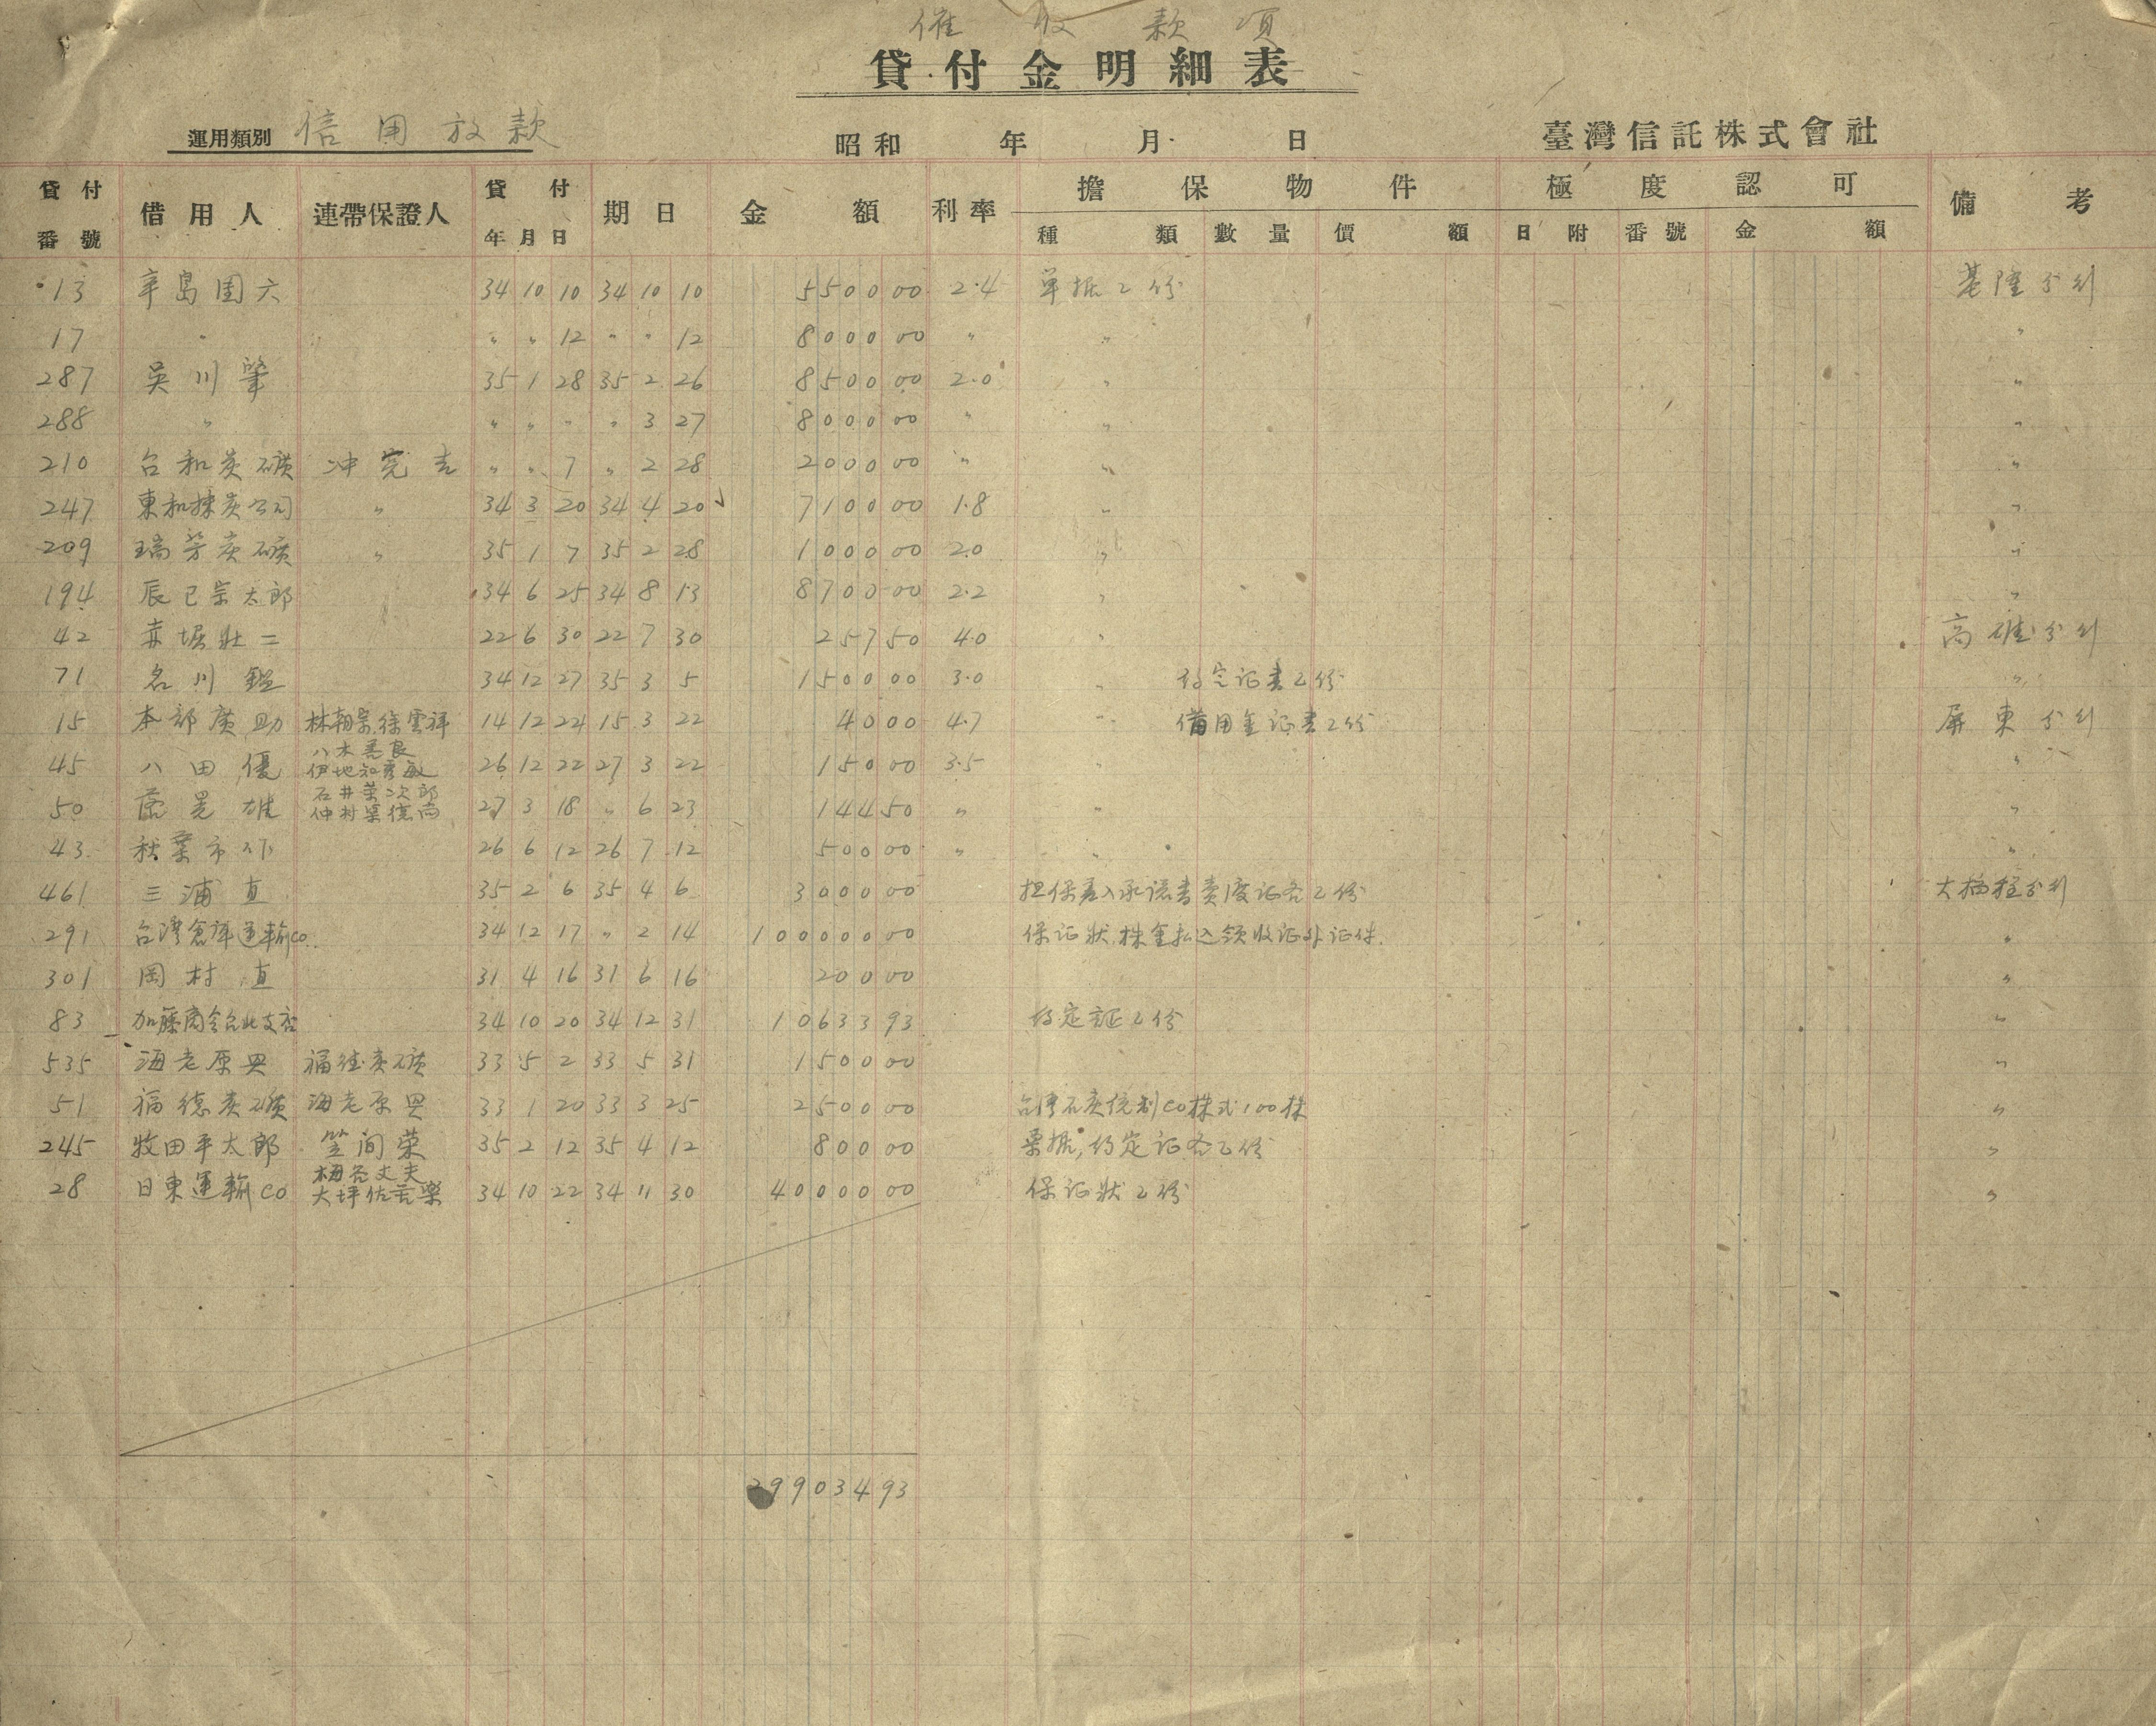 催收款項
貸付金明細表
運用類別 信用放款 昭和 年 月 日 臺灣信託株式會社
貸付番號 借用人 連帶保證人 貸付年月日 期日 金額 利率 擔保物件 極度認可 備考
種類 數量 價額 日附 番號 金額
13 辛島国六 34 10 10 34 10 10 5500 00 2.4 単拠乙份 基隆分行
17 〃 〃 〃 12 〃 〃 12 8000 00 〃 〃 〃
287 吳川肇 35 1 28 35 2 26 8500 00 2.0 〃 〃
288 〃 〃 〃 〃 〃 3 27 8000 00 〃 〃 〃
210 台和炭礦 冲 吉 〃 〃 7 〃 2 28 2000 00 〃 〃 〃
247 東和煉炭公司 〃 34 3 20 34 4 20 7100 00 1.8 〃 〃
209 瑞芳炭礦 〃 35 1 7 35 2 28 1000 00 2.0 〃 〃
194 辰巳宗太郎 34 6 25 34 8 13 8700 00 2.2 〃 〃
42 赤堀壯二 22 6 30 22 7 30 257 50 4.0 〃 高雄分行
71 名川鑑 34 12 27 35 3 5 1500 00 3.0 〃 約定証書乙份 〃
15 本部廣助 林朝 徐雲祥 14 12 22 15 3 22 40 00 4.7 〃 借用金証書乙份 屏東分行
45 八田優 八木善良 伊地知 敏 26 12 22 27 3 22 150 00 3.5 〃 〃
50 雄 石井 次郎 仲村渠 27 3 18 〃 6 23 144 50 〃 〃 〃
43 秋葉市 26 6 12 26 7 12 500 00 〃 〃 〃
461 三浦直 35 2 6 35 4 6 3000 00 担保差入承諾書賣渡証各乙份 大稻埕分行
291 台灣倉庫運輸co. 34 12 17 〃 2 14 100000 00 保証狀,株金払込領收証外証件. 〃
301 岡村直 31 4 16 31 6 16 200 00 〃
83 加藤商会台北支店 34 10 20 34 12 31 10633 93 約定証乙份 〃
535 海老原興 福德炭礦 33 5 2 33 5 31 1500 00 〃
51 福德炭礦 海老原興 33 1 20 33 3 25 2500 00 台灣石炭統制co株式100株 〃
245 牧田平太郎 笠间荣 35 2 12 35 4 12 800 00 票据,約定証各乙份 〃
28 日東運輸co 梅谷丈夫 大坪佐 34 10 22 34 11 30 40000 00 保証狀乙份 〃
299034 93